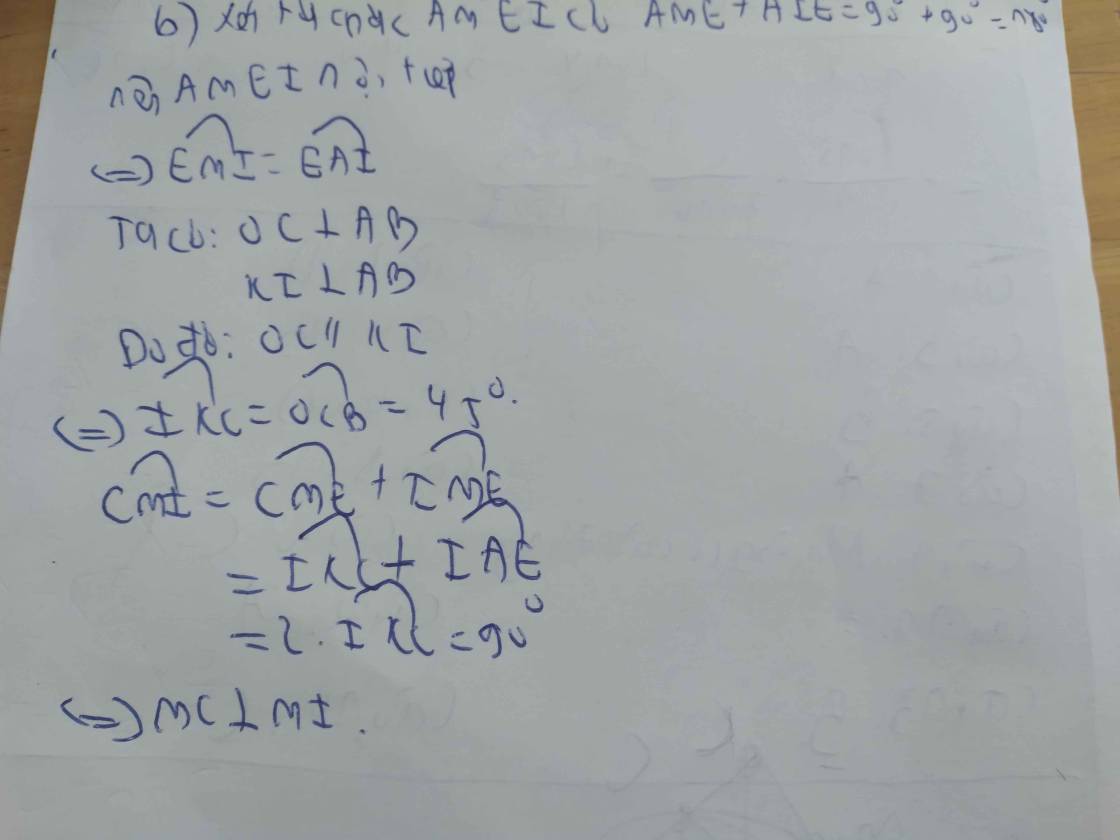 b) Xét tứ giác AMEI có AME + AIE = 90° + 90° = 180°
nên AMEI nội tiếp
<=> EMI = EAI
Ta có: OC ⊥ AB
KI ⊥ AB
Do đó: OC // KI
<=> IKC = OCB = 45°.
CMI = CME + IME
= IKC + IAE
= 2. IKC = 90°
<=> MC ⊥ MI.